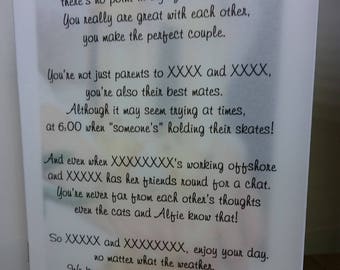 there's no point in
You really are great with each other,
you make the perfect couple.
You're not just parents to XXXX and XXXX,
you're also their best mates.
Although it may seem trying at times,
at 6:00 when "someone's" holding their skates!
And even when XXXXXXXXX's working offshore
and XXXXX has her friends round for a chat.
You're never far from each other's thoughts
even the cats and Alfie know that!
So XXXXX and XXXXXXXX, enjoy your day.
no matter what the weather.